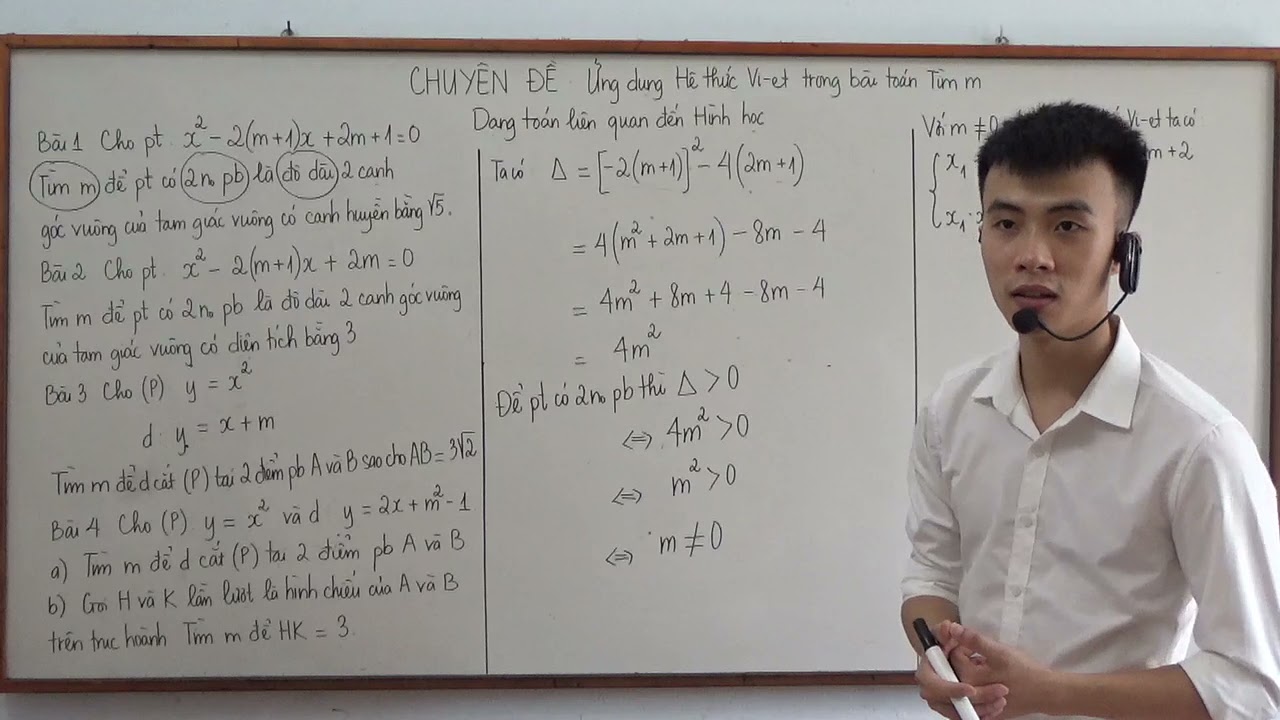 CHUYÊN ĐỀ. Ứng dụng Hệ thức Vi-et trong bài toán Tìm m
Dạng toán liên quan đến Hình học
Bài 1 Cho pt. x² - 2(m+1)x + 2m + 1 = 0
Tìm m để pt có 2no pb là độ dài 2 cạnh
góc vuông của tam giác vuông có cạnh huyền bằng √5.
Bài 2 Cho pt. x² - 2(m+1)x + 2m = 0
Tìm m để pt có 2no pb là độ dài 2 cạnh góc vuông
của tam giác vuông có diện tích bằng 3
Bài 3 Cho (P) y = x²
d. y = x + m
Tìm m để d cắt (P) tại 2 điểm pb A và B sao cho AB = 3√2
Bài 4 Cho (P) y = x² và d y = 2x + m² - 1
a) Tìm m để d cắt (P) tại 2 điểm pb A và B
b) Gọi H và K lần lượt là hình chiếu của A và B
trên trục hoành Tìm m để HK = 3.
Ta có Δ = [-2(m+1)]² - 4(2m+1)
= 4(m² + 2m + 1) - 8m - 4
= 4m² + 8m + 4 - 8m - 4
= 4m²
Để pt có 2no pb thì Δ > 0
⇔ 4m² > 0
⇔ m² > 0
⇔ m ≠ 0
Với m ≠ 0 Vi-et ta có
x₁ m + 2
x₁.